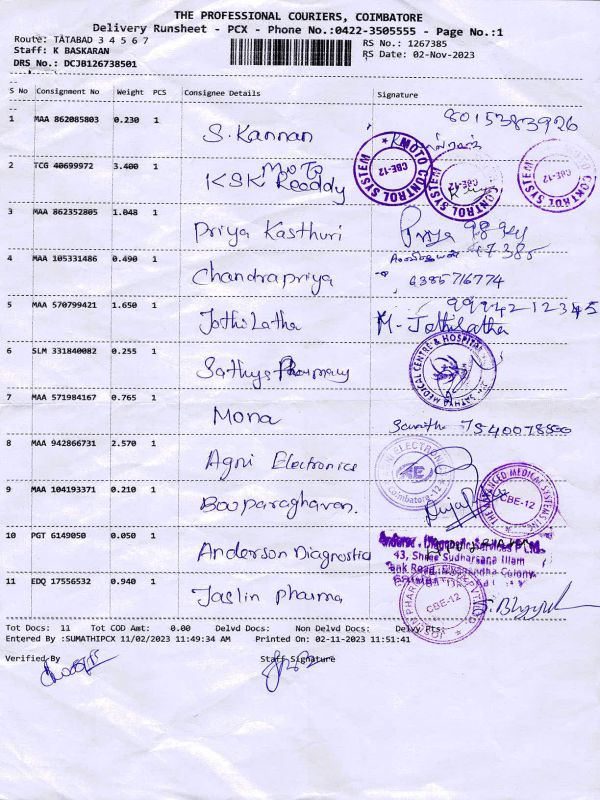 THE PROFESSIONAL COURIERS, COIMBATORE
Delivery Runsheet - PCX - Phone No.:0422-3505555 - Page No.:1
Route: TATABAD 3 4 5 6 7
Staff: K BASKARAN
RS No.: 1267385
RS Date: 02-Nov-2023
DRS No.: DCJB126738501
S No Consignment No Weight PCS Consignee Details Signature
1 MAA 862085803 0.230 1 S. Kannan 8015383926
2 TCG 40699972 3.400 1 KSK Readdy Moto
MOTO CONTROL SYSTEM CBE-12
MOTO CONTROL SYSTEM CBE-12
MOTO CONTROL SYSTEM CBE-12
3 MAA 862352805 1.048 1 Priya Kasthuri Priya
4 MAA 105331486 0.490 1 Chandrapriya 6385716774
5 MAA 570799421 1.650 1 Jothilatha 9994212345
M. Jothilatha
6 SLM 331840082 0.255 1 Sathya Pharmacy
SATHYA MEDICAL CENTRE & HOSPITAL
7 MAA 571984167 0.765 1 Mona
8 MAA 942866731 2.570 1 Agni Electronics
ELECTRONICS AE Coimbatore-12
9 MAA 104193371 0.210 1 Booparaghavan.
THE ADVANCED MEDICAL SYSTEMS CBE-12
10 PGT 6149050 0.050 1 Anderson Diagnostic
43, Shree Sudharsana Illam
Bank Road, Colony
11 EDQ 17556532 0.940 1 Jaslin pharma
CBE-12
Tot Docs: 11 Tot COD Amt: 0.00 Delvd Docs: Non Delvd Docs: Delvy Pts:
Entered By :SUMATHIPCX 11/02/2023 11:49:34 AM Printed On: 02-11-2023 11:51:41
Verified By Staff Signature